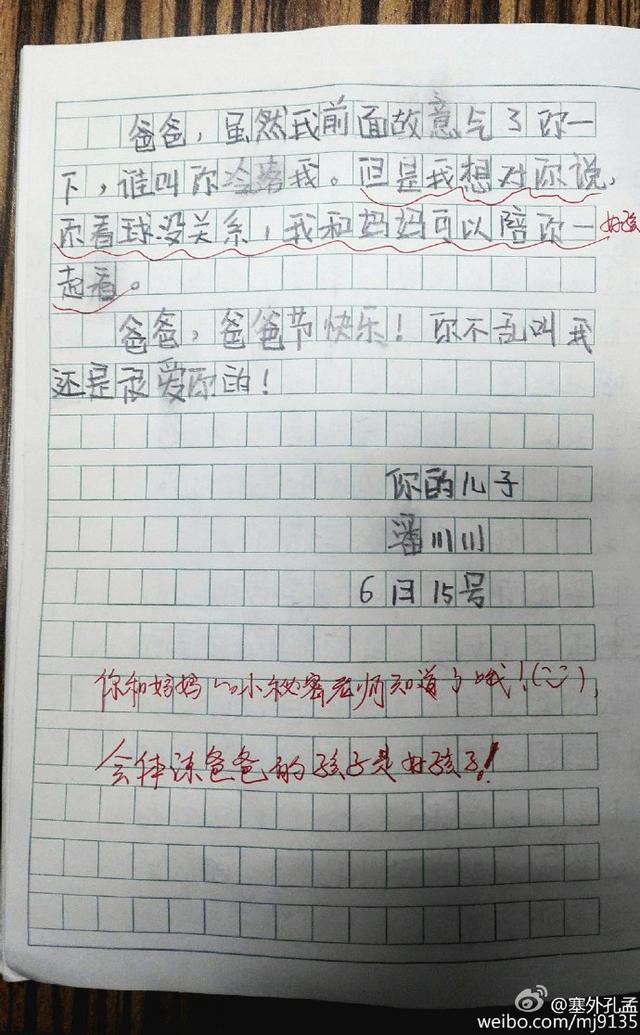 爸爸，虽然我前面故意气了你一
下，谁叫你冷落我。但是我想对你说，
你看球没关系，我和妈妈可以陪你一
好孩
起看。
爸爸，爸爸节快乐！你不乱叫我
还是很爱你的！
你的儿子
潘川川
6月15号
你和妈妈的小秘密老师知道了哦！
会体谅爸爸的孩子是好孩子！
@塞外孔孟
weibo.com/mj9135